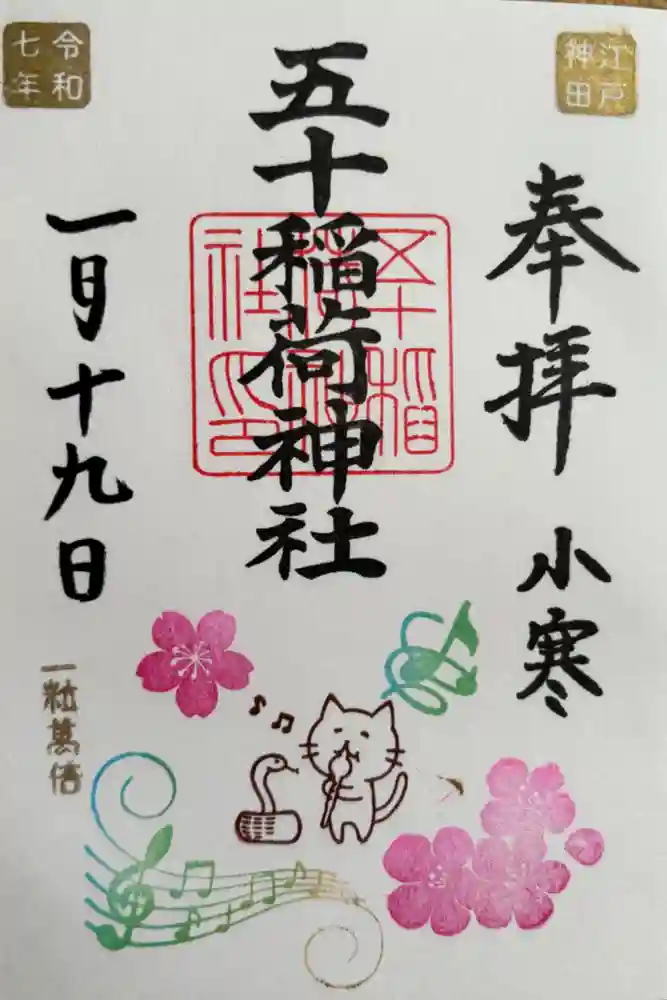 江戸
神田
奉拝 小寒
五十稲荷神社
五十稲
荷神
社之印
令和
七年
一月十九日
一粒萬倍